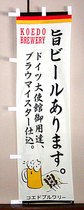 KOEDO
BREWERY
旨ビールあります。
ドイツ大使館御用達、
ブラウマイスター仕込。
コエドブルワリー